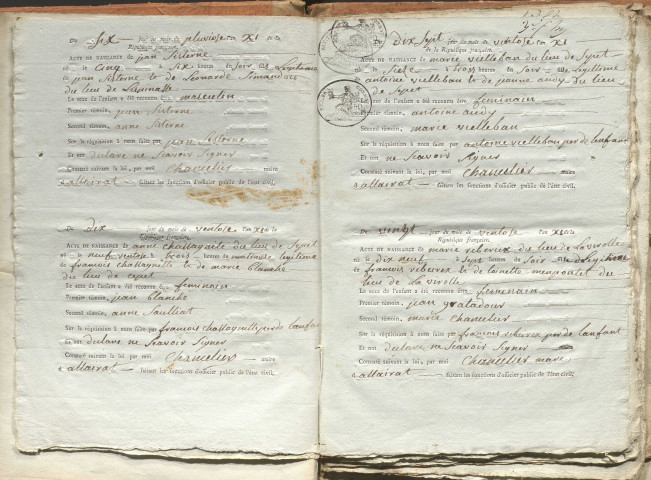 Du Six jour du mois de pluviose l'an XI de la
République française.
ACTE DE NAISSANCE de jean Sisterne
né le Cinq à Six heures du Soir fils Legitime
de jean Sisterne et de Leonarde
du lieu de
Le sexe de l'enfant a été reconnu être masculin
Premier témoin, jean Sisterne
Second témoin, anne Sisterne
Sur la réquisition à nous faite par jean Sisterne
Et ont declare ne Scavoir Signer
Constaté suivant la loi, par moi Chancelier maire
d allairat faisant les fonctions d'officier public de l'état civil.
Du Dix jour du mois de ventose l'an XI de la
République française.
ACTE DE NAISSANCE de anne Chassagnitte du lieu de Sypet
né le neuf ventose à trois heures du legitime
de francois Chassagnitte et de marie blanche
du lieu de
Le sexe de l'enfant a été reconnu être feminain
Premier témoin, jean blanche
Second témoin, anne
Sur la réquisition à nous faite par francois Chassagnitte per de lanfant
Et ont declare ne Scavoir Signer
Constaté suivant la loi, par moi Chancelier maire
d allairat faisant les fonctions d'officier public de l'état civil.
Du Dix Sept jour du mois de ventose l'an XI
de la République française.
ACTE DE NAISSANCE de marie vielleban du lieu de Sypet
né le Sieze à trois heures du Soir Legitime
antoine vielleban et de jeanne audy du lieu
de Sypet
Le sexe de l'enfant a été reconnu être feminain
Premier témoin, antoine audy
Second témoin, marie vielleban
Sur la réquisition à nous faite par antoine vielleban per de lanfant
Et ont ne Scavoir Signer
Constaté suivant la loi, par moi Chancelier maire
d allairat faisant les fonctions d'officier public de l'état civil.
Du vingt jour du mois de ventose l'an XI de la
République française.
ACTE DE NAISSANCE de marie reberex du lieu de Lavirolle
né le dix neuf à Sept heures du Soir
de francois reberex et de du
lieu de La virolle
Le sexe de l'enfant a été reconnu être femenain
Premier témoin, jean gratadour
Second témoin, marie Chancelier
Sur la réquisition à nous faite par francois reberex per de lanfant
Et ont declare ne Scavoir Signer
Constaté suivant la loi, par moi Chancelier maire
d allairat faisant les fonctions d'officier public de l'état civil.